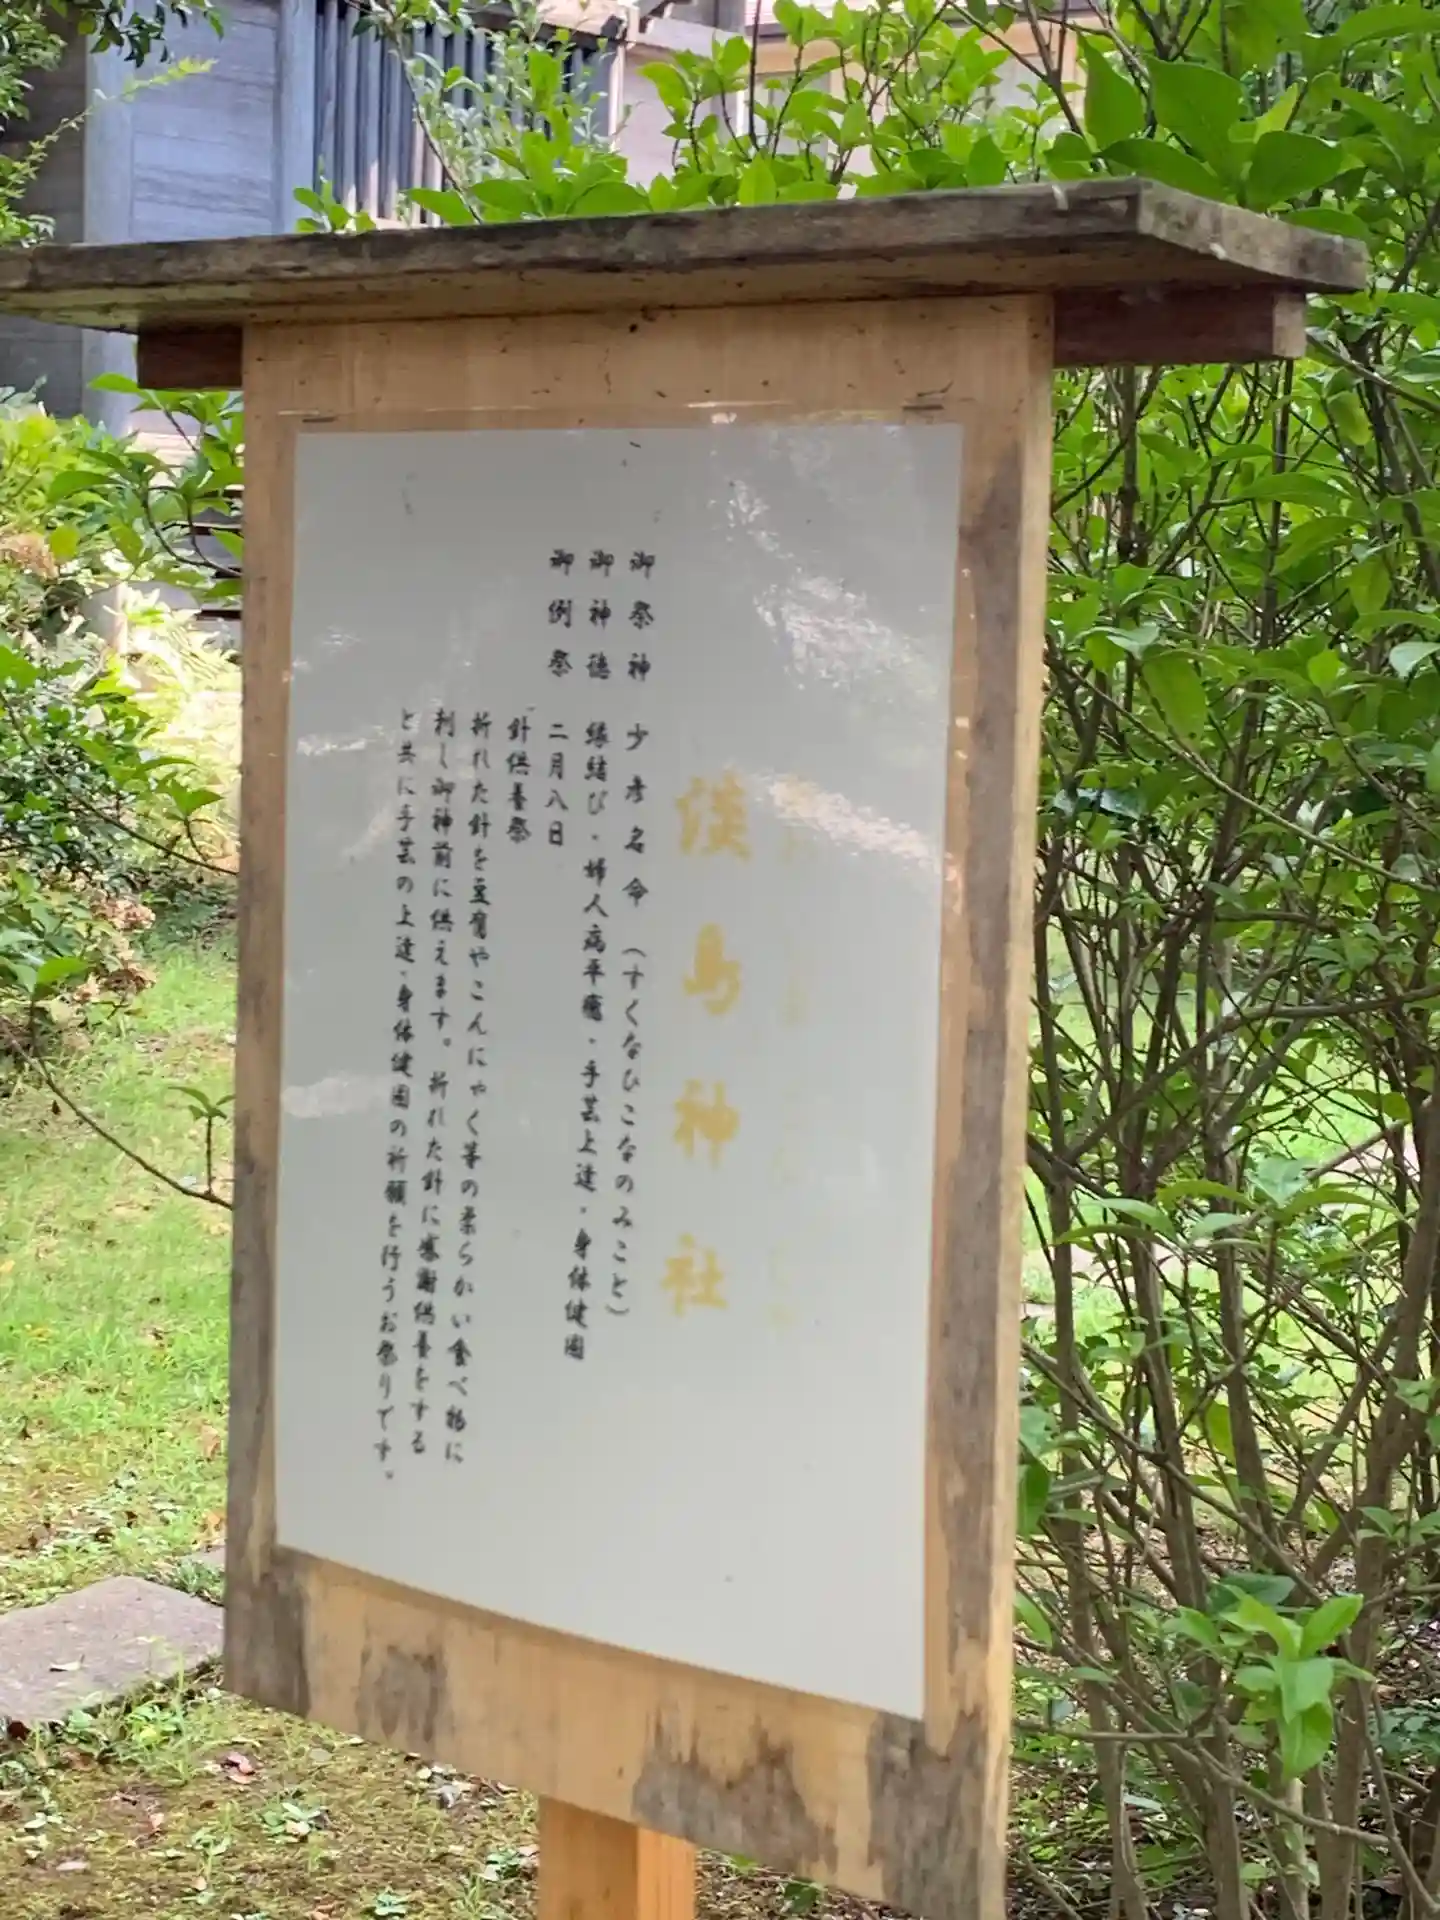 淡島神社
御祭神 少彦名命 (すくなひこなのみこと)
御神徳 縁結び・婦人病平癒・手芸上達・身体健固
御例祭 二月八日
針供養祭
折れた針を豆腐やこんにゃく等の柔らかい食べ物に
刺し御神前に供えます。折れた針に感謝供養をする
と共に手芸の上達・身体健固の祈願を行うお祭りです。